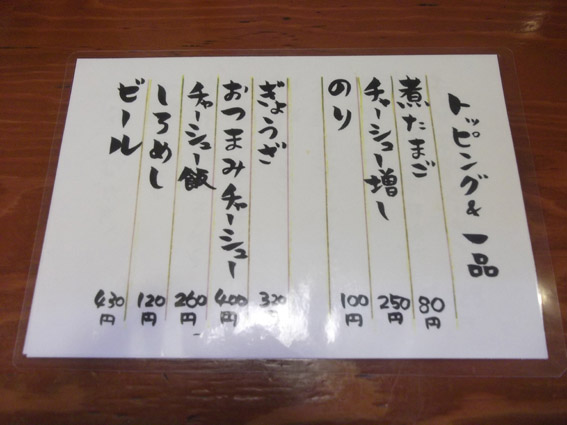 トッピング&一品
煮たまご 80円
チャーシュー増し 250円
のり 100円
ぎょうざ 320円
おつまみチャーシュー 400円
チャーシュー飯 260円
しろめし 120円
ビール 430円